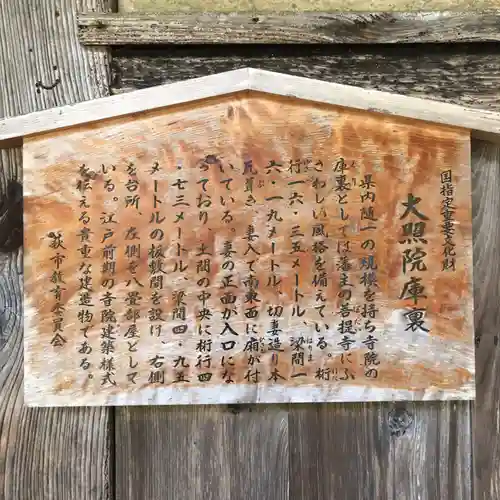 国指定重要文化財
大照院庫裏
県内随一の規模を持ち寺院の
庫裏としては藩主の菩提寺にふ
さわしい風格を備えている。桁
行一六・三五メートル、梁間一
六・一九メートル、切妻造り本
瓦葺き、妻入で南東面に廂が付
いている。妻の正面が入口にな
っており、土間の中央に桁行四
・七三メートル、梁間四・九五
メートルの板敷間を設け、右側
を台所、左側を八畳部屋として
いる。江戸前期の寺院建築様式
を伝える貴重な建造物である。
萩市教育委員会